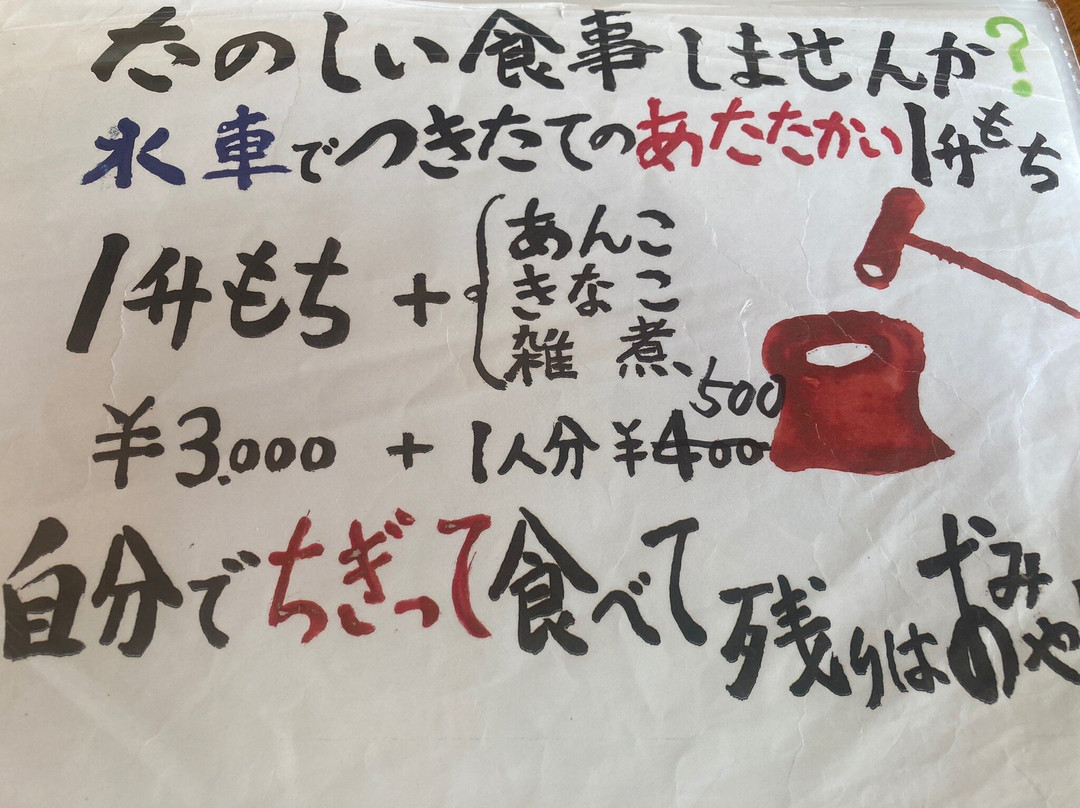 たのしい食事しませんか?
水車でつきたてのあたたかい1升もち
1升もち + {あんこ
きなこ
雑煮
500
¥3.000 + 1人分 ¥400
自分でちぎって食べて残りはおみや